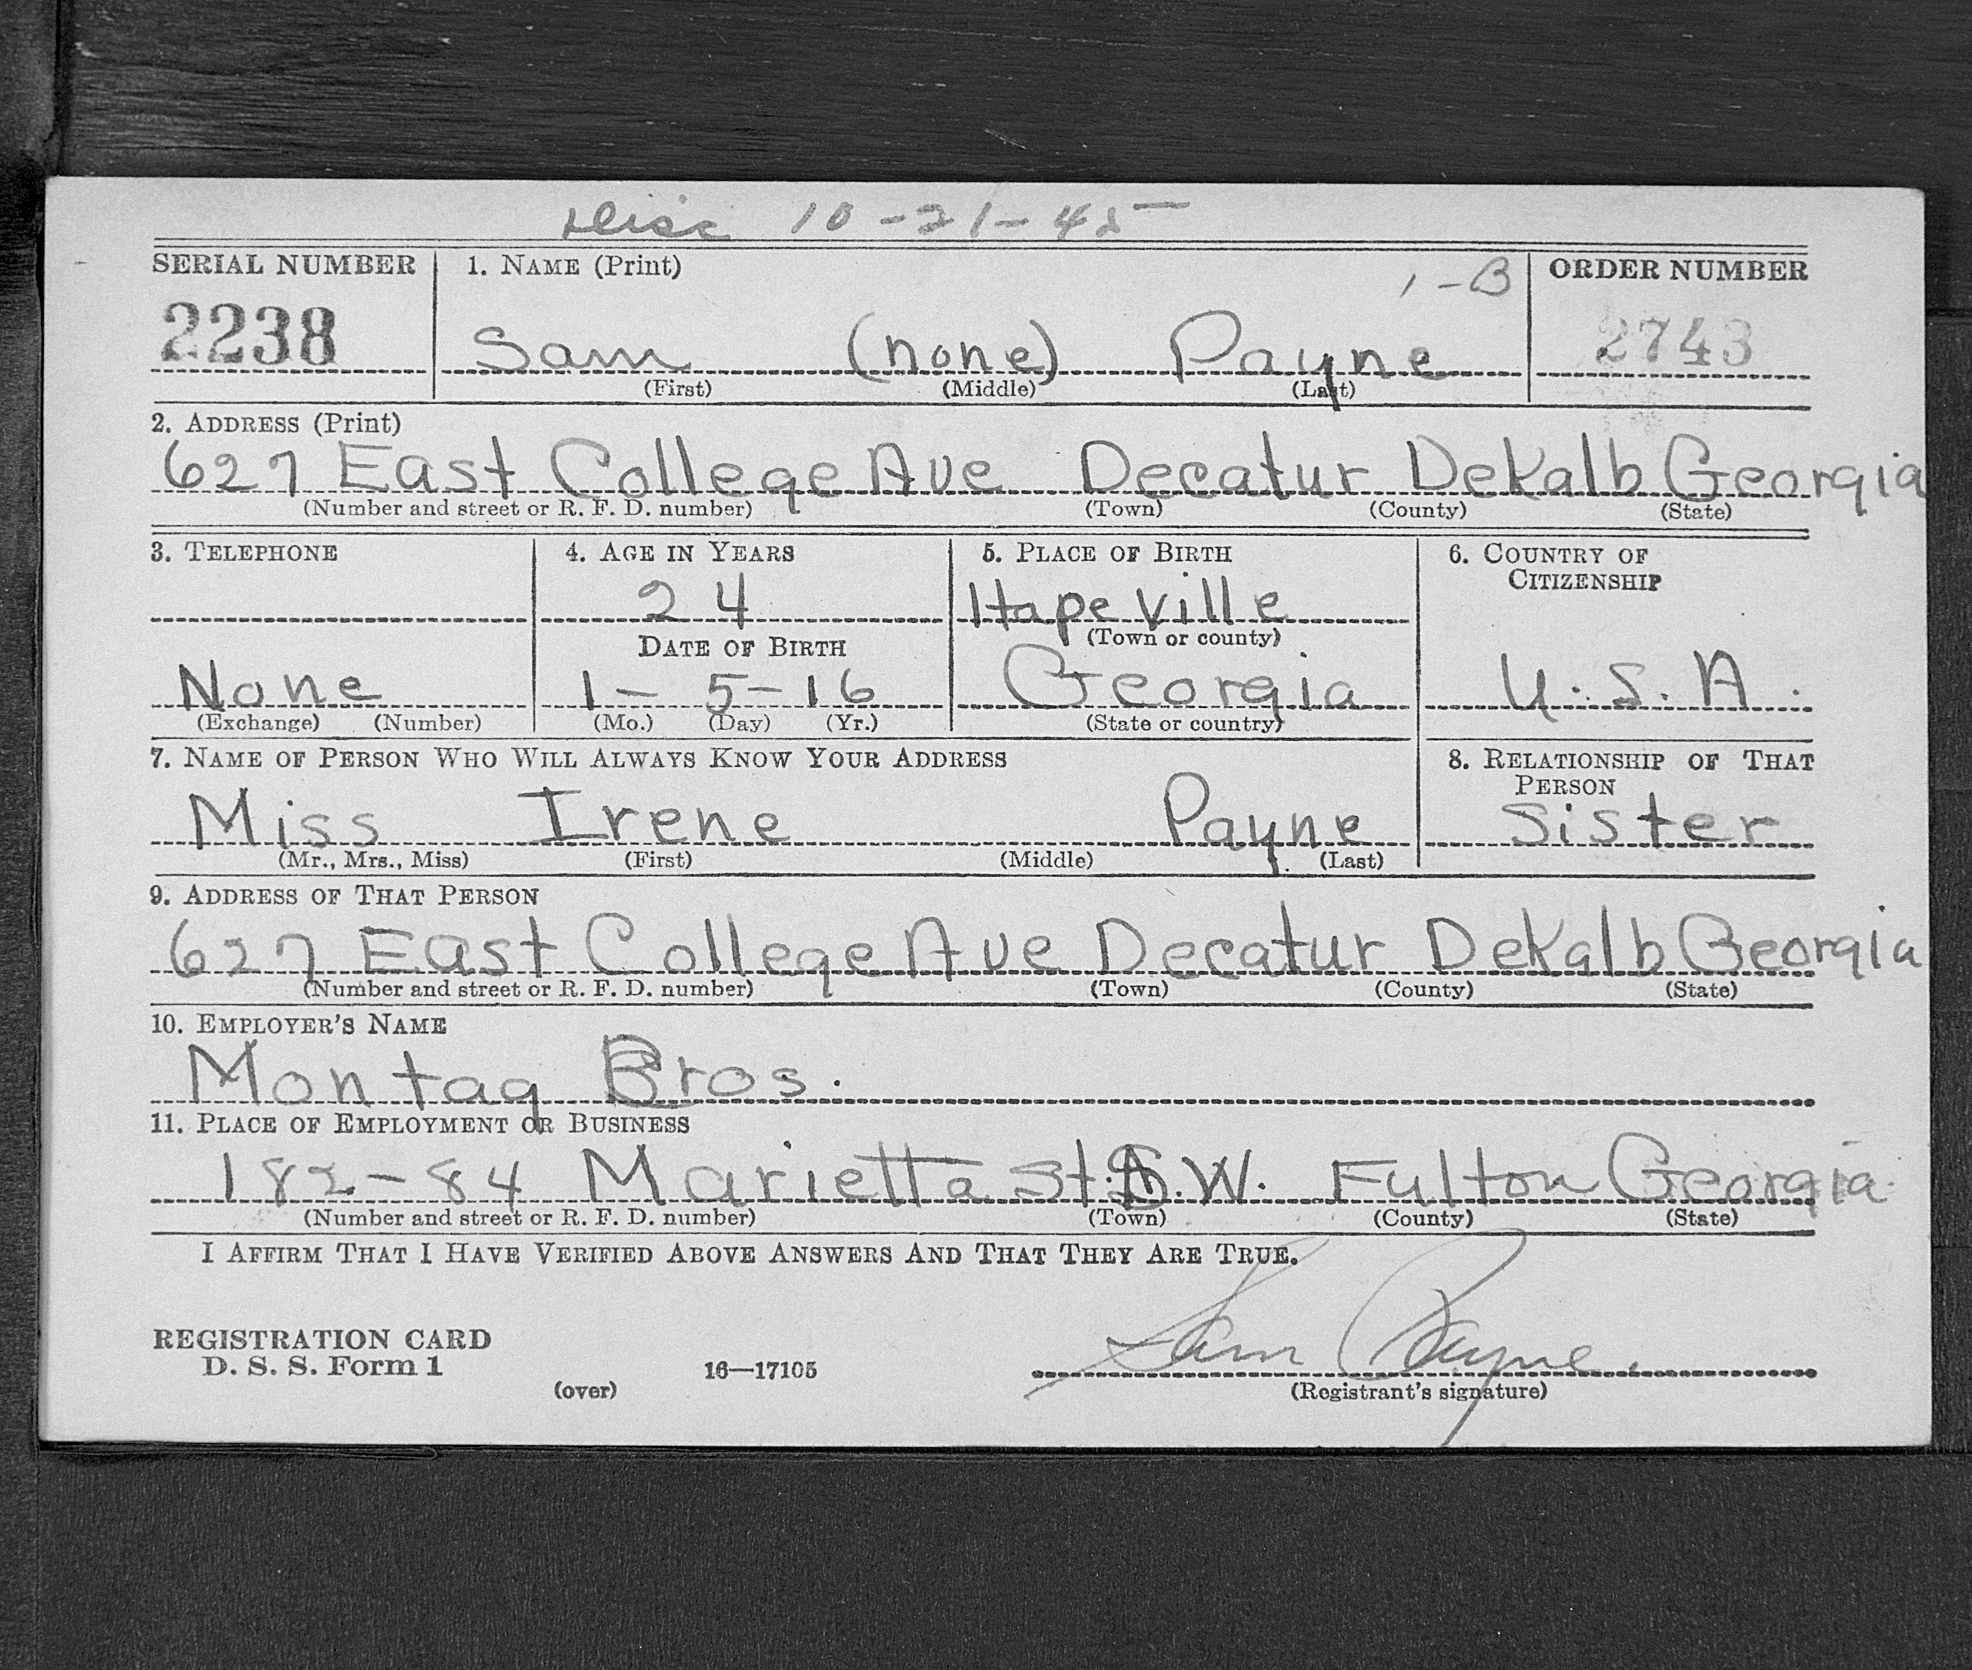 Disc 10-21-45
SERIAL NUMBER 1. NAME (Print) 1-B ORDER NUMBER
2238 Sam (none) Payne 2743
(First) (Middle) (Last)
2. ADDRESS (Print)
627 East College Ave Decatur DeKalb Georgia
(Number and street or R. F. D. number) (Town) (County) (State)
3. TELEPHONE 4. AGE IN YEARS 5. PLACE OF BIRTH 6. COUNTRY OF
CITIZENSHIP
24 HapeVille
DATE OF BIRTH (Town or county)
None 1-5-16 Georgia U.S.A.
(Exchange) (Number) (Mo.) (Day) (Yr.) (State or country)
7. NAME OF PERSON WHO WILL ALWAYS KNOW YOUR ADDRESS 8. RELATIONSHIP OF THAT
PERSON
Miss Irene Payne Sister
(Mr., Mrs., Miss) (First) (Middle) (Last)
9. ADDRESS OF THAT PERSON
627 East College Ave Decatur DeKalb Georgia
(Number and street or R. F. D. number) (Town) (County) (State)
10. EMPLOYER'S NAME
Montag Bros.
11. PLACE OF EMPLOYMENT OR BUSINESS
182-84 Marietta St. W. Fulton Georgia
(Number and street or R. F. D. number) (Town) (County) (State)
I AFFIRM THAT I HAVE VERIFIED ABOVE ANSWERS AND THAT THEY ARE TRUE.
REGISTRATION CARD
D. S. S. Form 1 16—17105 Sam Payne.
(over) (Registrant's signature)